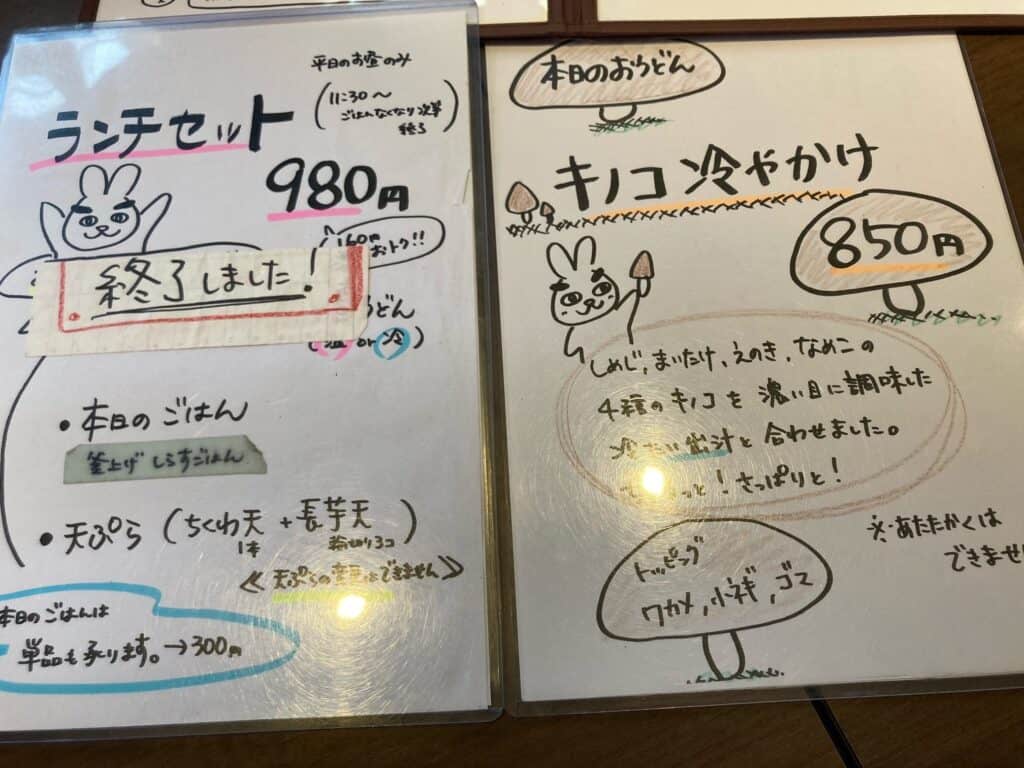 平日のお昼のみ
(11:30〜
ごはんなくなり次第
終了)
ランチセット
980円
160円
おトク!!
終了しました!
うどん
(温 or 冷)
• 本日の ごはん
釜上げ しらすごはん
• 天ぷら (ちくわ天 + 長芋天)
1本 輪切り3コ
≪天ぷらの変更はできません≫
本日の ごはんは
単品も承ります。→300円
本日のおうどん
キノコ 冷やかけ
850円
しめじ, まいたけ, えのき, なめこの
4種の キノコを 濃い目に調味した
冷たい出汁と 合わせました。
っと!さっぱりと!
※・あたたかくは
できませ
トッピング
ワカメ, 小ネギ, ゴマ